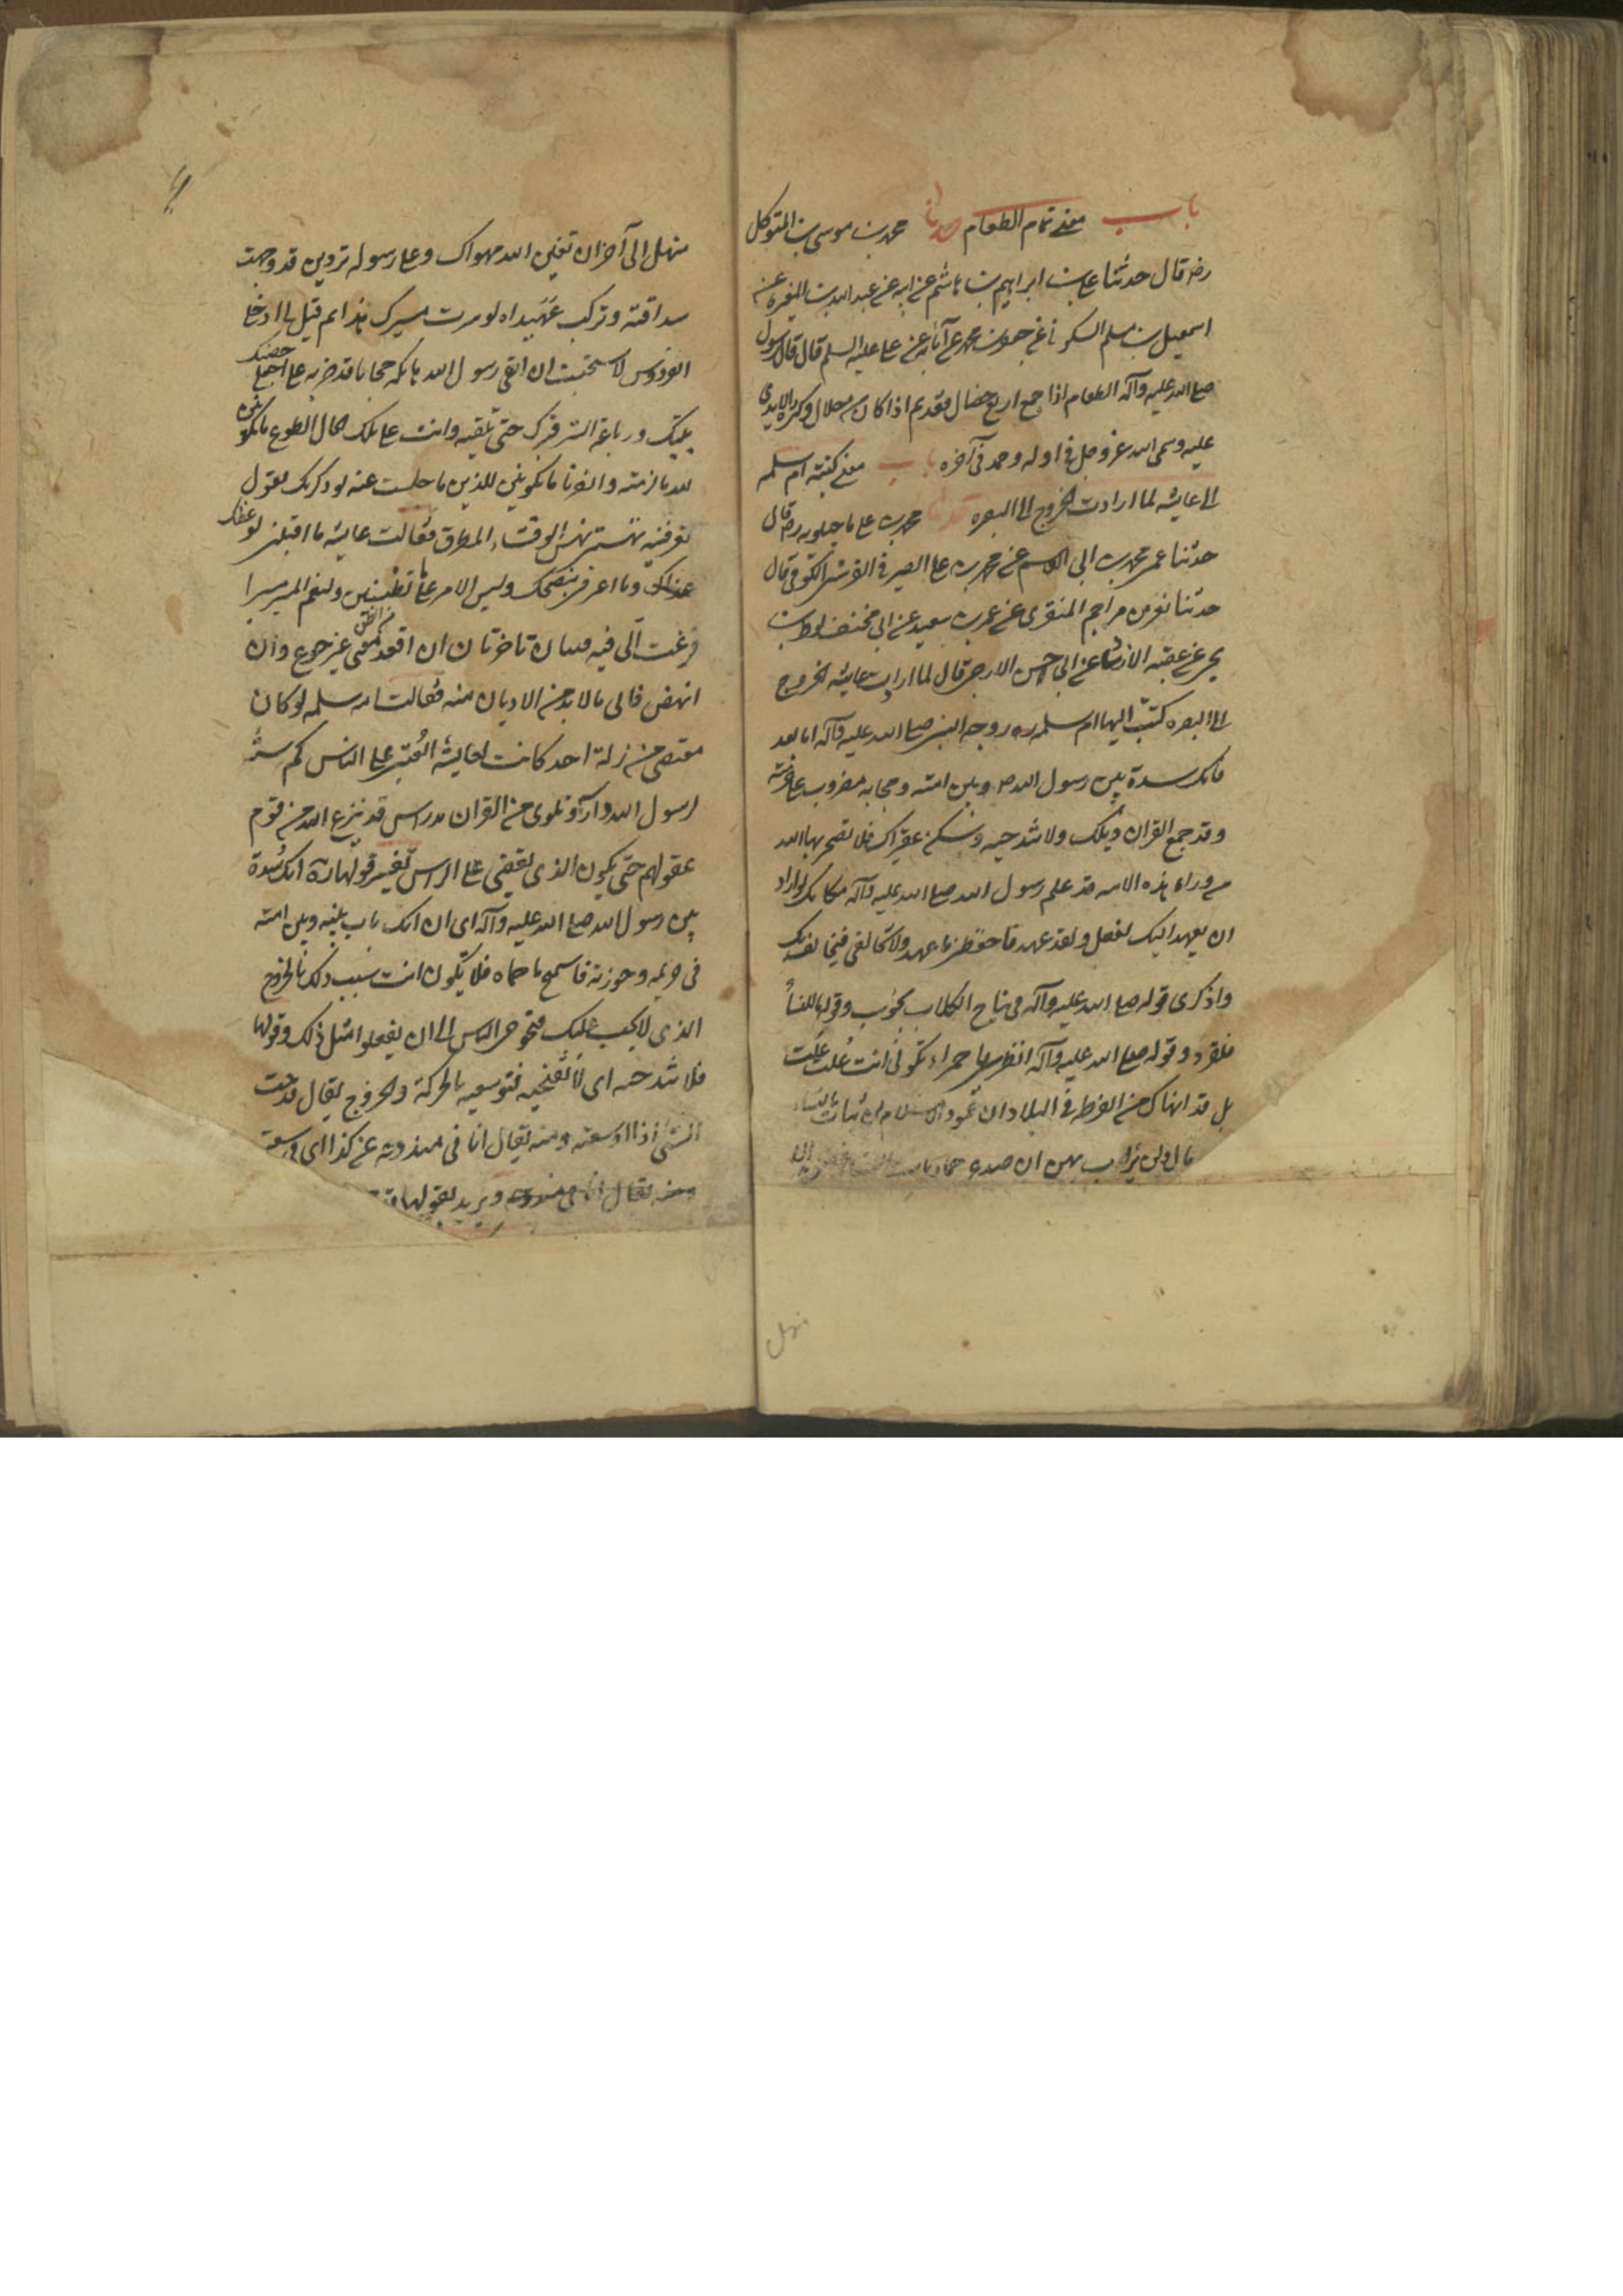 باب معنى تمام الطعام حدثنا محمد بن موسى بن المتوكل
رضه قال حدثنا على بن ابراهيم بن هاشم عن ابيه عن عبد الله بن المغيرة عن
اسمعيل بن مسلم السكونى عن جعفر بن محمد عن آبائه عن على عليه السلم قال قال رسول
صلى الله عليه وآله الطعام اذا جمع اربع خصال فقد تم اذا كان من حلال وكثرت الايدى
عليه وسمى الله عز وجل فى اوله وحمد فى آخره باب معنى كتبته ام سلمه
الى عايشه لما ارادت الخروج الى البصره حدثنا محمد بن على ماجيلويه رضه قال
حدثنا عمى محمد بن ابى القسم عن محمد بن على الصيرفى القرشى الكوفى قال
حدثنا نصر بن مزاحم المنقرى عن عمر بن سعيد عن ابى مخنف لوط بن
يحيى عن عقبه الازدى عن ابى الاخنس الارجى قال لما ارادت عايشه الخروج
الى البصره كتبت اليها ام سلمه ره زوجه النبى صلى الله عليه وآله اما بعد
فانك سدة بين رسول الله ص وبين امته وحجابه مضروب على حرمته
وقد جمع القران ذيلك ولا تندحيه وسكن عقيراك فلا تصحريها الله
من وراء هذه الامه قد علم رسول الله صلى الله عليه وآله مكانك لو اراد
ان يعهد اليك لفعل ولقد عهد فاحفظى ما عهد ولا تخالفى فيخالف بك
واذكرى قوله صلى الله عليه وآله فى نباح الكلاب بحوب وقوله ما للنساء
فلغزو وقوله صلى الله عليه وآله انظرى يا حمراء الا تكونى انت علت علت
بل قد نهاك عن الفرط فى البلاد ان عمود الاسلام لن يثاب بالنساء
مال ولن يراب بهن ان صدع
منهل الى آخر ان بعين الله مهواك وعلى رسوله تردين قد وجهت
سدافته وتركت عهيداه لو سرت مسيرك هذا ثم قيل لى ادخلى
الفردوس لاستحييت ان القى رسول الله هاتكة حجابا قد ضربه على اجعلى حصنك
بيتك ورباعة الستر قبرك حتى تلقيه وانت على تلك الحال اطوع ما تكونين
لله ما لزمته وانصر ما تكونين للدين ما جلست عنه لو ذكرتك بقول
تعرفينه نهشتنى نهش الرقشاء المطرق فقالت عايشه ما اقبلنى لوعظك
وما اعرفنى بنصحك وليس الامر على ما تظنين ولنعم المسير مسيرا
فزعت الى فيه فئتان متناجزتان ان اقعد ففى غير حرج وان
انهض فالى ما لا بد من الازدياد منه فقالت ام سلمه لو كان
معتصم من زلة احد كانت لعايشه العتبى على الناس كم سنة
لرسول الله دارسة وتلو آى من القران مدراس قد ينزع الله من قوم
عقولهم حتى يكون الذى يقضى على الراس تفسير قولها ره انك سدة
بين رسول الله صلى الله عليه وآله اى انك باب بينه وبين امته
فى حريمه وحوزته فاستبيح ما حماه فلا تكونى انت سبب ذلك بالخروج
الذى لا يجب عليك فتحوجى الناس الى ان يفعلوا مثل ذلك وقولها
فلا تندحيه اى لا تفتحيه فتوسعيه بالحركة والخروج يقال ندحت
الشئ اذا اوسعته ومنه يقال انا فى مندوحة عن كذا اى فى سعة